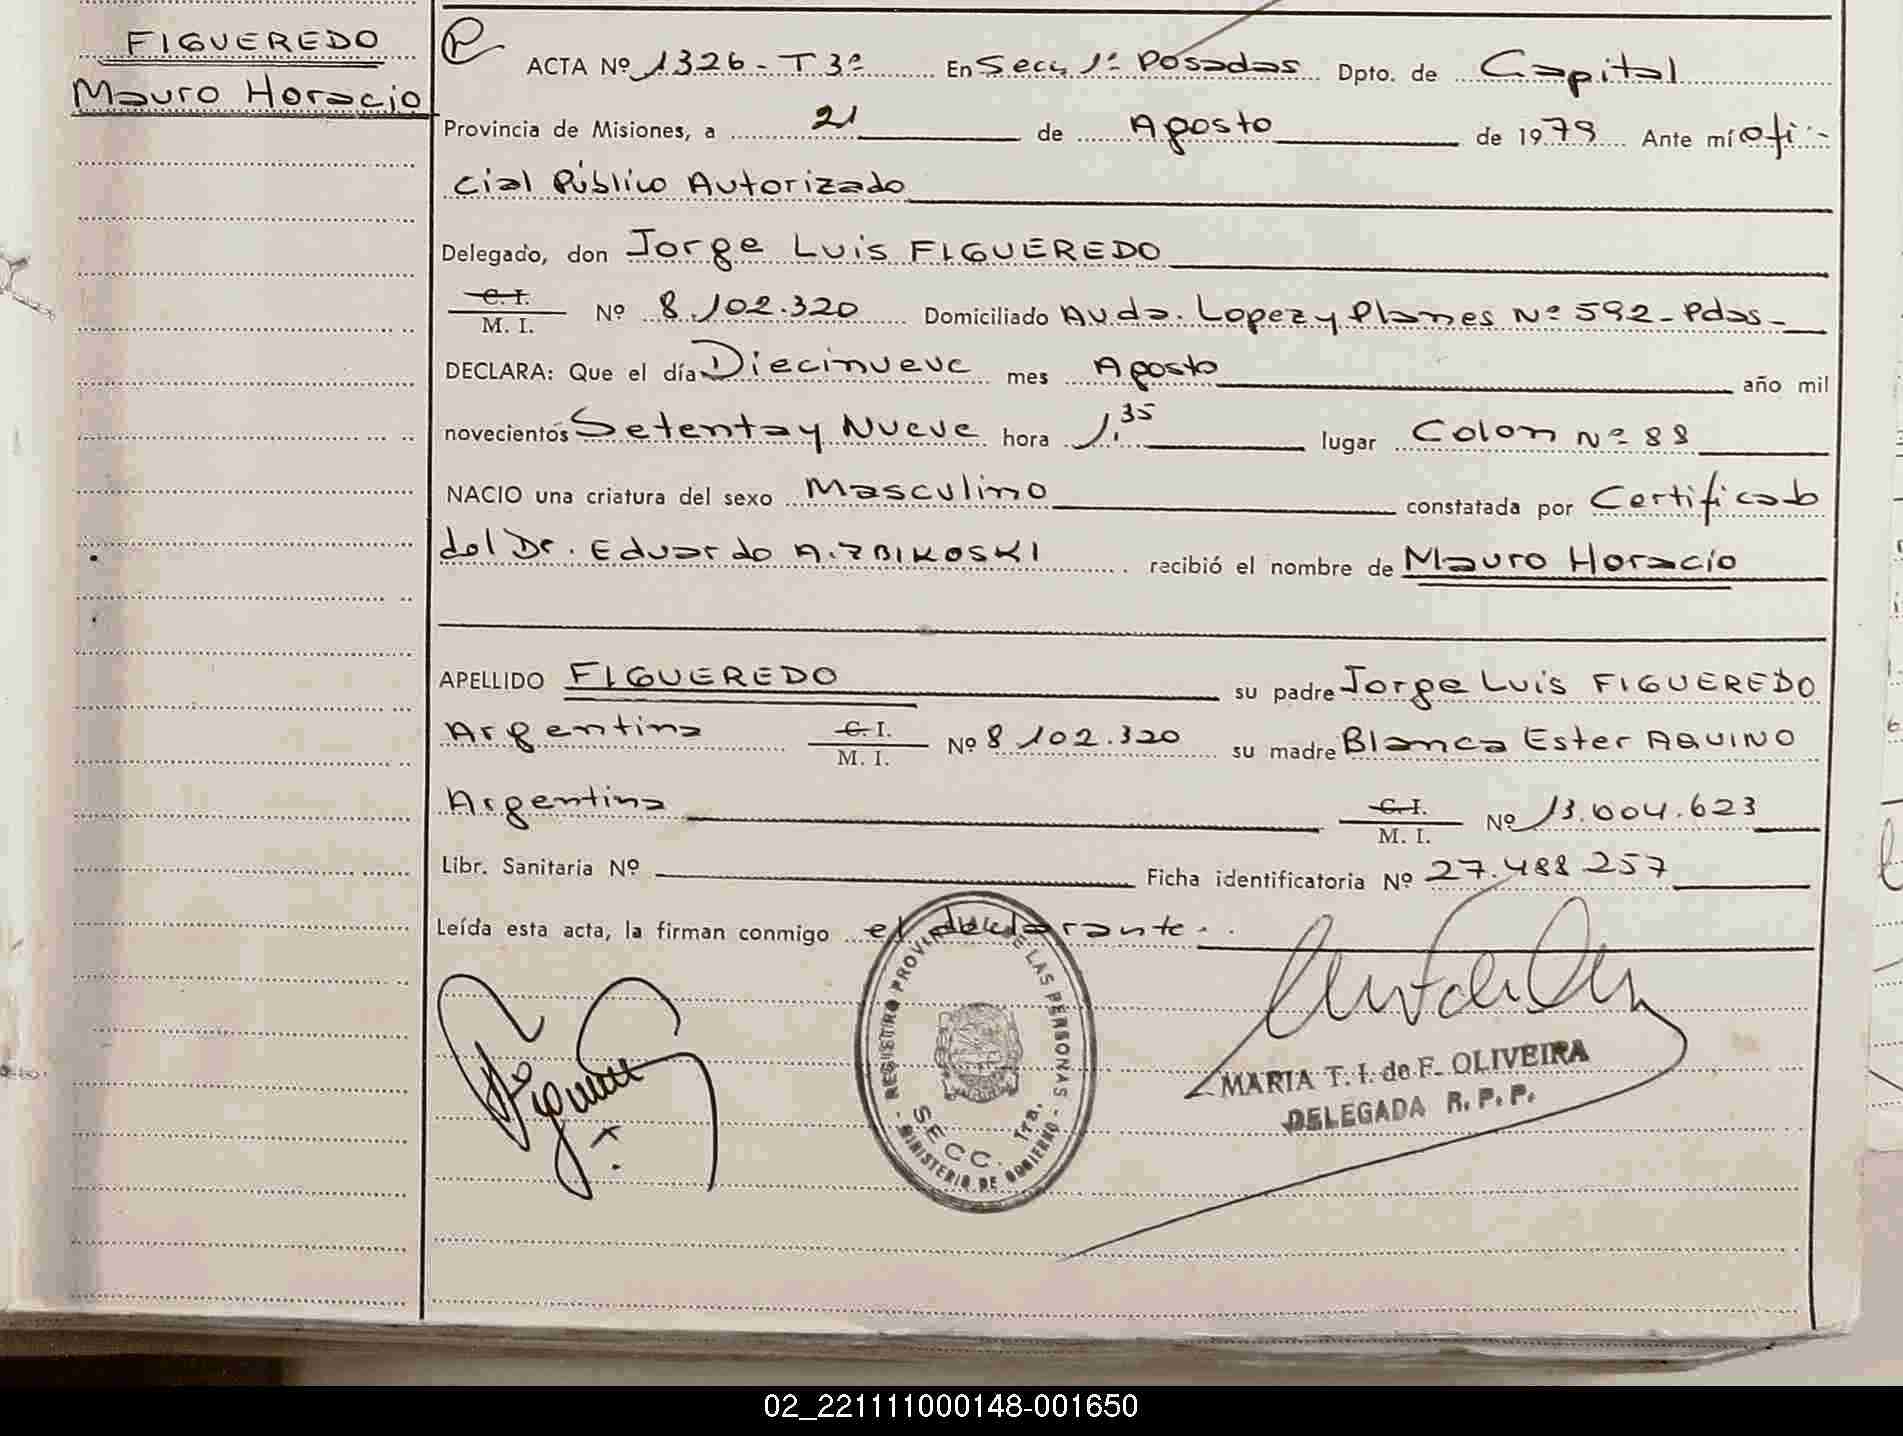 FIGUEREDO
Mauro Horacio
ACTA Nº 1326 - T 3º En Secc. 1ª Posadas Dpto. de Capital
Provincia de Misiones, a 21 de Agosto de 1979 Ante mí ofi-
cial Público Autorizado
Delegado, don Jorge Luis FIGUEREDO
C. I.
M. I. Nº 8.102.320 Domiciliado Avda. Lopez y Planes Nº 592 - Pdas -
DECLARA: Que el día Diecinueve mes Agosto año mil
novecientos Setenta y Nueve hora 1,35 lugar Colon Nº 88
NACIO una criatura del sexo Masculino constatada por Certificado
del Dr. Eduardo A. ZBIKOSKI recibió el nombre de Mauro Horacio
APELLIDO FIGUEREDO su padre Jorge Luis FIGUEREDO
Argentina C. I.
M. I. Nº 8.102.320 su madre Blanca Ester AQUINO
Argentina C. I.
M. I. Nº 13.004.623
Libr. Sanitaria Nº Ficha identificatoria Nº 27.488.257
Leída esta acta, la firman conmigo el declarante.
REGISTRO PROVINCIAL DE LAS PERSONAS
SECC. 1ra.
- MINISTERIO DE GOBIERNO -
MARIA T. I. de F. OLIVEIRA
DELEGADA R. P. P.
02_221111000148-001650